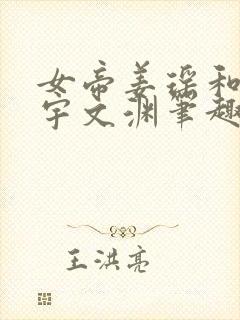 女帝姜瑶和
宇文渊笔趣
王洪亮